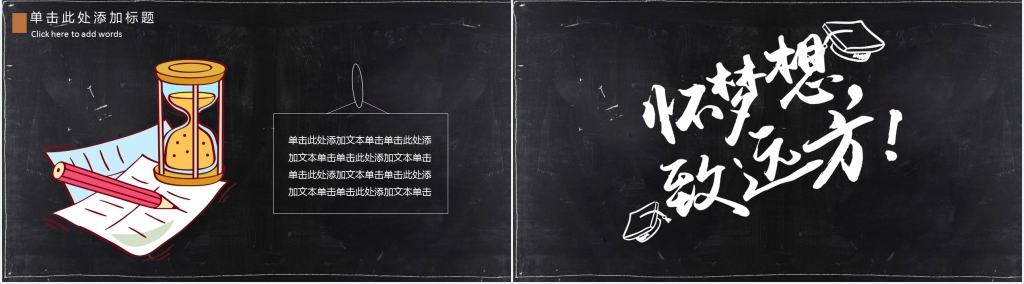 单击此处添加标题
Click here to add words
单击此处添加文本单击单击此处添
加文本单击单击此处添加文本单击
单击此处添加文本单击单击此处添
加文本单击单击此处添加文本单击
怀梦想，
致远方！